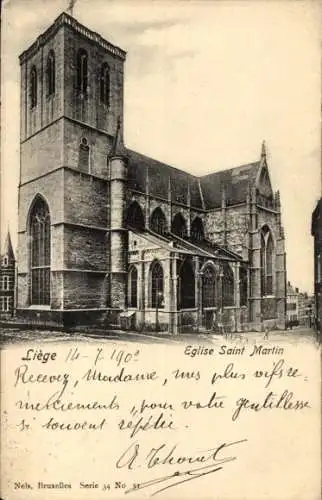 Liège 14-7-190² Eglise Saint Martin
Recevez, Madame, mes plus vifs re-
merciements, pour votre gentillesse
si souvent répétée.
A. Thonet
Nels, Bruxelles Serie 34 No. 51